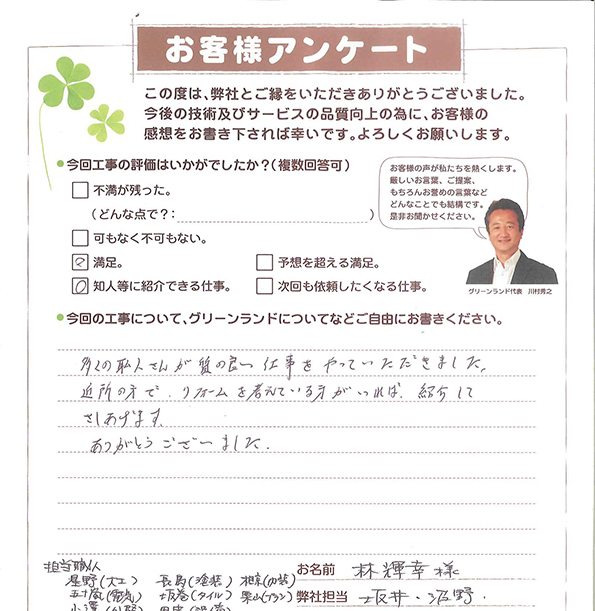 お客様アンケート
この度は、弊社とご縁をいただきありがとうございました。
今後の技術及びサービスの品質向上の為に、お客様の
感想をお書き下されば幸いです。よろしくお願いします。
今回工事の評価はいかがでしたか？（複数回答可）
不満が残った。
（どんな点で？： ）
可もなく不可もない。
満足。
予想を超える満足。
知人等に紹介できる仕事。
次回も依頼したくなる仕事。
お客様の声が私たちを熱くします。
厳しいお言葉、ご提案、
もちろんお誉めの言葉など
どんなことでも結構です。
是非お聞かせください。
グリーンランド代表 川村秀之
今回の工事について、グリーンランドについてなどご自由にお書きください。
多くの職人さんが質の良い仕事をやっていただきました。
近所の方で、リフォームを考えている方がいれば、紹介して
さしあげます。
ありがとうございました。
担当職人
星野(大工) 長島(塗装) (内装)
五十嵐(電気) (タイル) 栗山(プラン)
お名前 林輝幸様
弊社担当 坂井・沼野